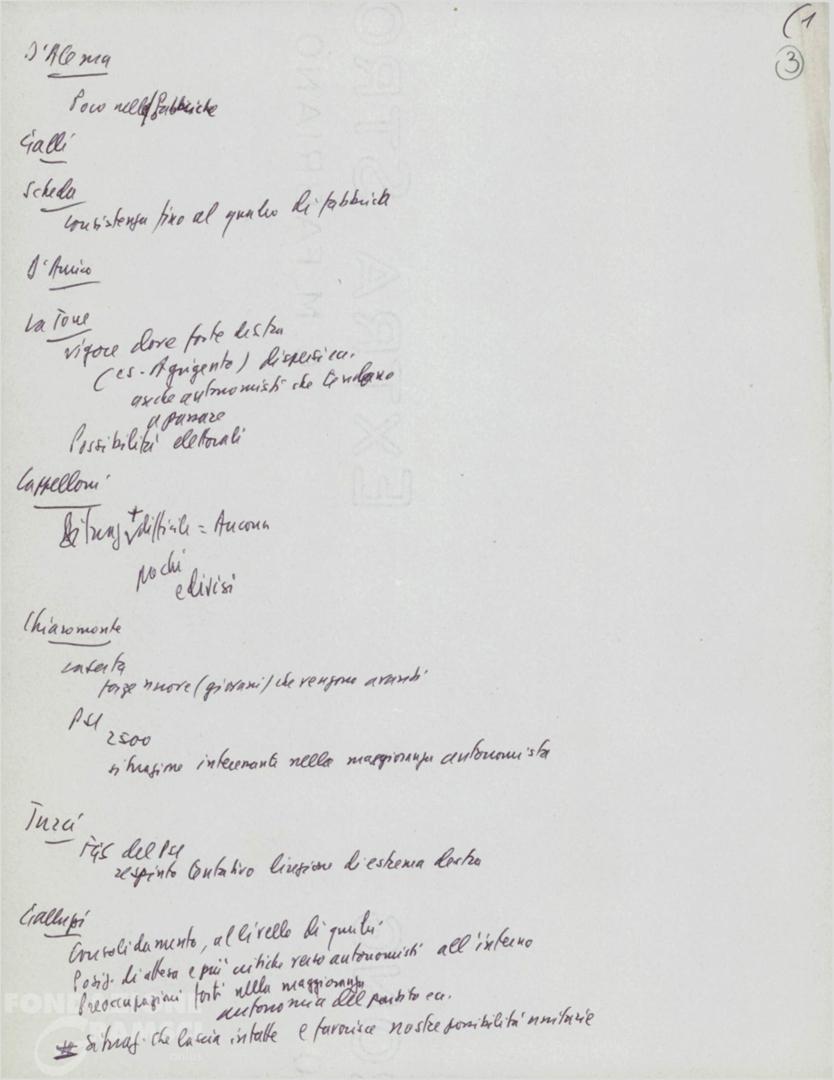 (1
3
D'Alema
Poco nelle fabbriche
Galli
Scheda
Consistenza fino al quadro di fabbrica
D'Amico
La Torre
vigore dove forte destra
(es. Agrigento) dispersi ecc.
anche autonomisti che tendono
a passare
Possibilità elettorali
Cappelloni
Situaz + difficile = Ancona
pochi
e divisi
Chiaromonte
Caserta
forze nuove (giovani) che vengono avanti
PSI
2500
situazione interessante nella maggioranza autonomista
Turci
FGS del PSI
respinto tentativo di estrema destra
Galluppi
Consolidamento, al livello di quadri
Posiz. di attesa e più critiche verso autonomisti all'interno
Preoccupazioni forti nella maggioranza
autonomia del partito ecc.
Situaz. che lascia intatte e favorisce nostre possibilità unitarie
FONDAZIONE
GRAMSCI
onlus
EXTRA STRO
M. FABRIANO